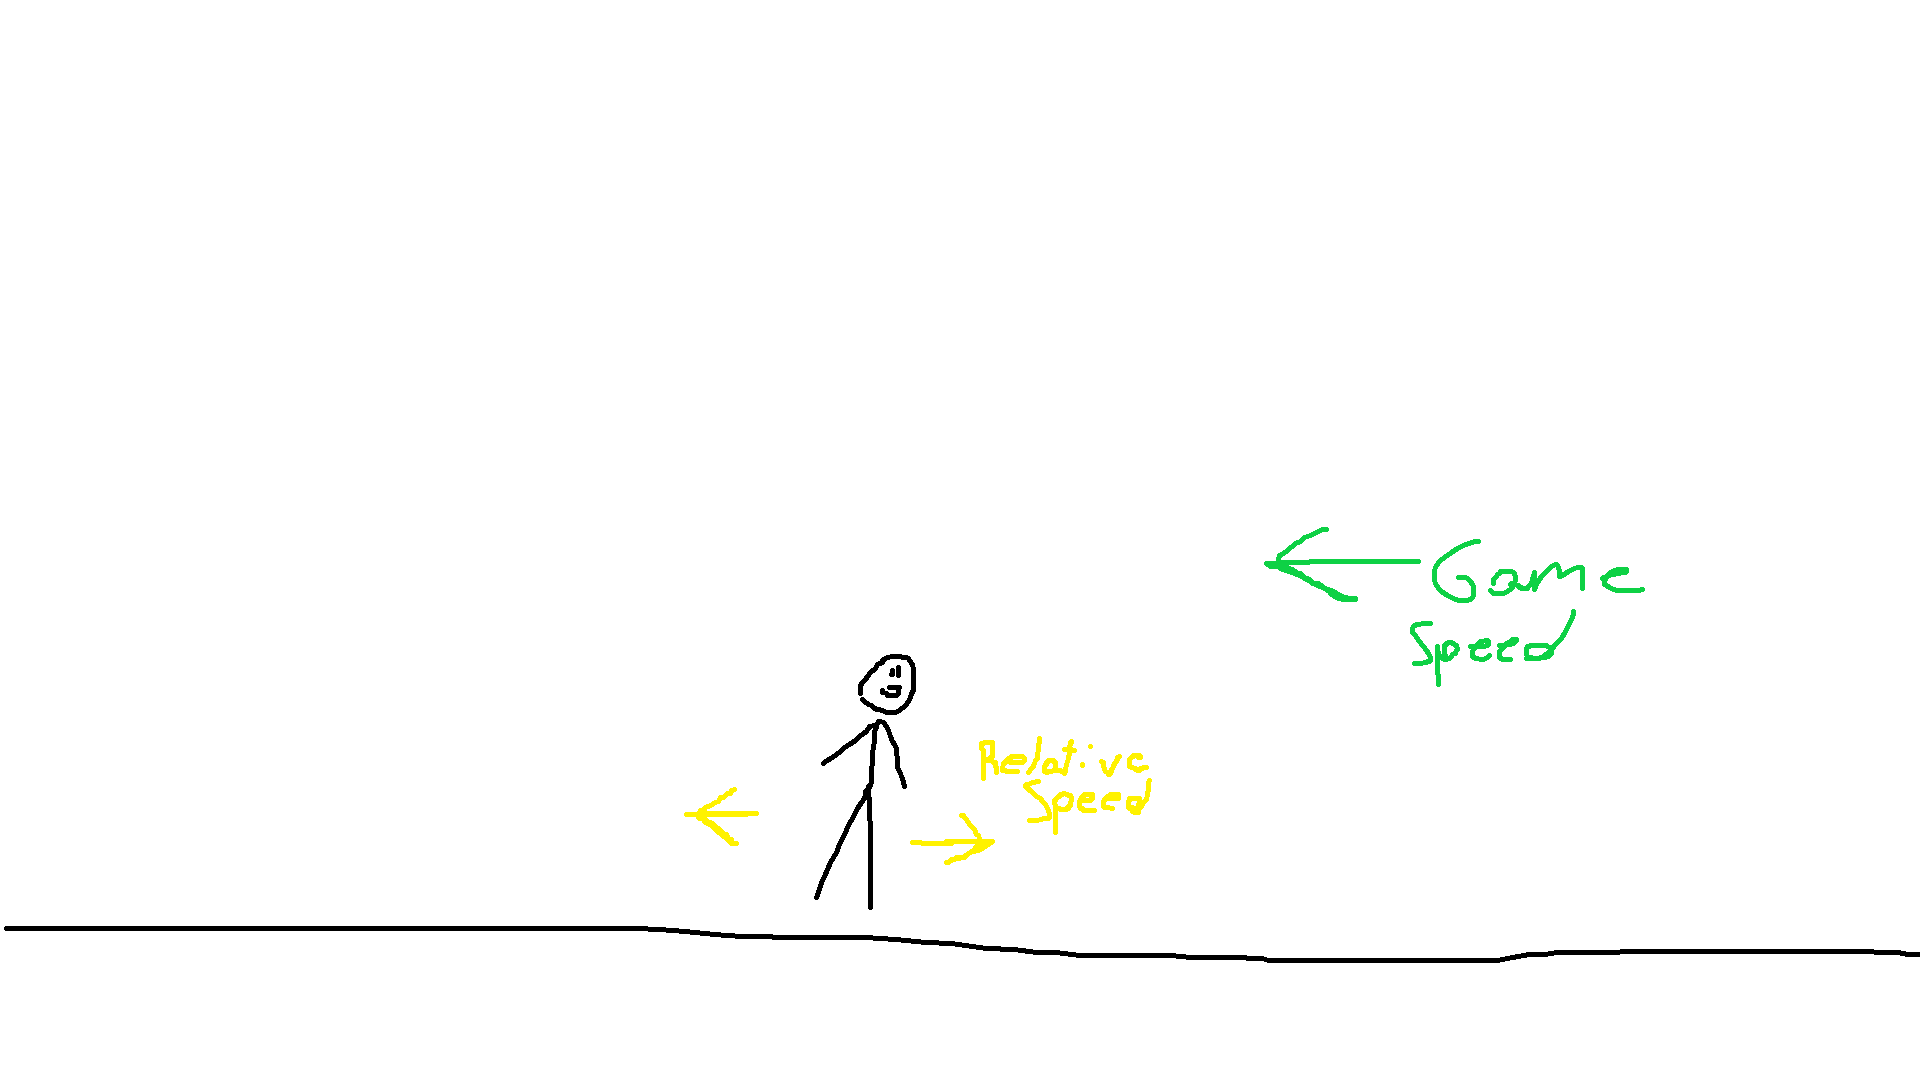 Game
Speed
Relative
Speed